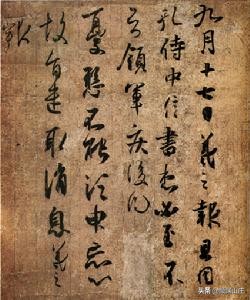 九月十七日羲之報且因
孔侍中信書想必至不
知領軍疾後問
憂懸不能須臾忘心
故旨遣取消息羲之
報
头条